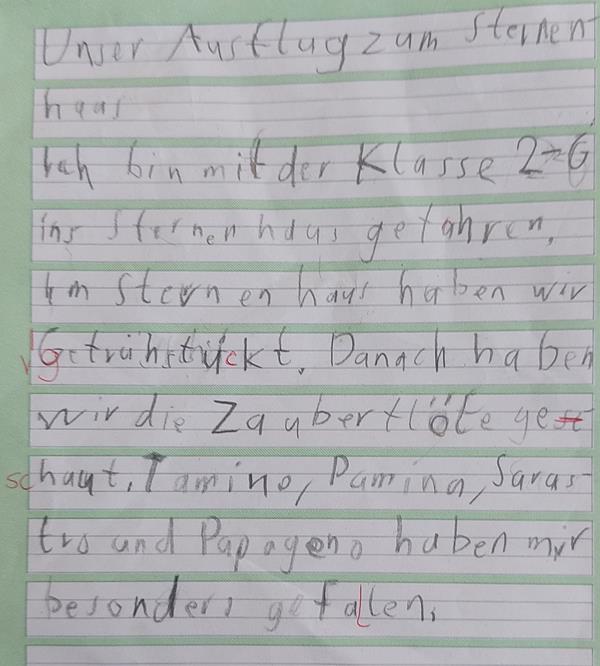 Unser Ausflug zum Sternen
haus
Ich bin mit der Klasse 2-G
ins Sternenhaus gefahren.
Im Sternenhaus haben wir
Gefrühstückt. Danach haben
wir die Zauberflöte ge
schaut. Tamino, Pamina, Saras-
tro und Papageno haben mir
besonders gefallen.